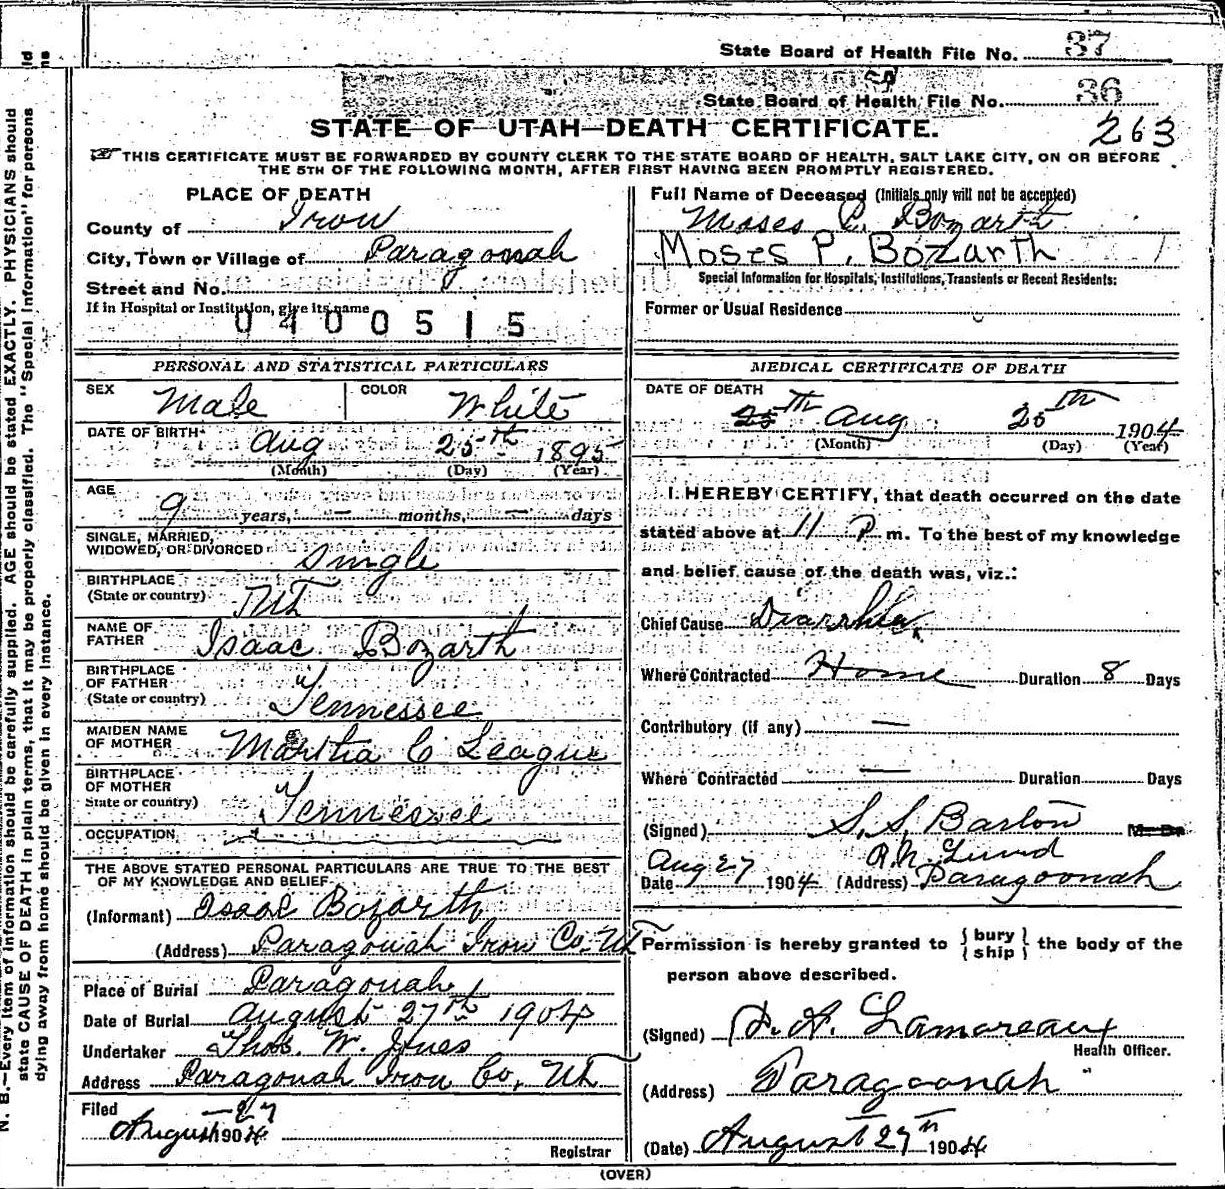 State Board of Health File No. 37
State Board of Health File No. 36
263
STATE OF UTAH—DEATH CERTIFICATE.
THIS CERTIFICATE MUST BE FORWARDED BY COUNTY CLERK TO THE STATE BOARD OF HEALTH, SALT LAKE CITY, ON OR BEFORE
THE 5TH OF THE FOLLOWING MONTH, AFTER FIRST HAVING BEEN PROMPTLY REGISTERED.
N. B.—Every item of information should be carefully supplied. AGE should be stated EXACTLY. PHYSICIANS should
state CAUSE OF DEATH in plain terms, that it may be properly classified. The "Special Information" for persons
dying away from home should be given in every instance.
PLACE OF DEATH
County of Iron
City, Town or Village of Paragonah
Street and No.
If in Hospital or Institution, give its name
0400515
PERSONAL AND STATISTICAL PARTICULARS
SEX Male COLOR White
DATE OF BIRTH Aug 25th 1895
(Month) (Day) (Year)
AGE 9 years, — months, — days
SINGLE, MARRIED,
WIDOWED, OR DIVORCED Single
BIRTHPLACE
(State or country) Ut
NAME OF
FATHER Isaac Bozarth
BIRTHPLACE
OF FATHER
(State or country) Tennessee
MAIDEN NAME
OF MOTHER Martha C League
BIRTHPLACE
OF MOTHER
State or country) Tennessee
OCCUPATION
THE ABOVE STATED PERSONAL PARTICULARS ARE TRUE TO THE BEST
OF MY KNOWLEDGE AND BELIEF.
(Informant) Isaac Bozarth
(Address) Paragonah Iron Co. Ut
Place of Burial Paragonah
Date of Burial August 27th 1904
Undertaker Thos. W. Jones
Address Paragonah Iron Co, Ut
Filed
August 27 1904
Registrar
Full Name of Deceased (Initials only will not be accepted)
Moses P. Bozarth
Moses P. Bozarth
Special Information for Hospitals, Institutions, Transients or Recent Residents:
Former or Usual Residence
MEDICAL CERTIFICATE OF DEATH
DATE OF DEATH
25th Aug 25th 1904
(Month) (Day) (Year)
I HEREBY CERTIFY, that death occurred on the date
stated above at 11 P m. To the best of my knowledge
and belief cause of the death was, viz.:
Chief Cause Diarrhea
Where Contracted Home Duration 8 Days
Contributory (if any) —
Where Contracted — Duration Days
(Signed) S. S. Barton M. D.
Lund
Aug 27
Date 1904 (Address) Paragoonah
Permission is hereby granted to { bury / ship } the body of the
person above described.
(Signed) Lamoreaux
Health Officer.
(Address) Paragoonah
(Date) August 27th 1904
(OVER)